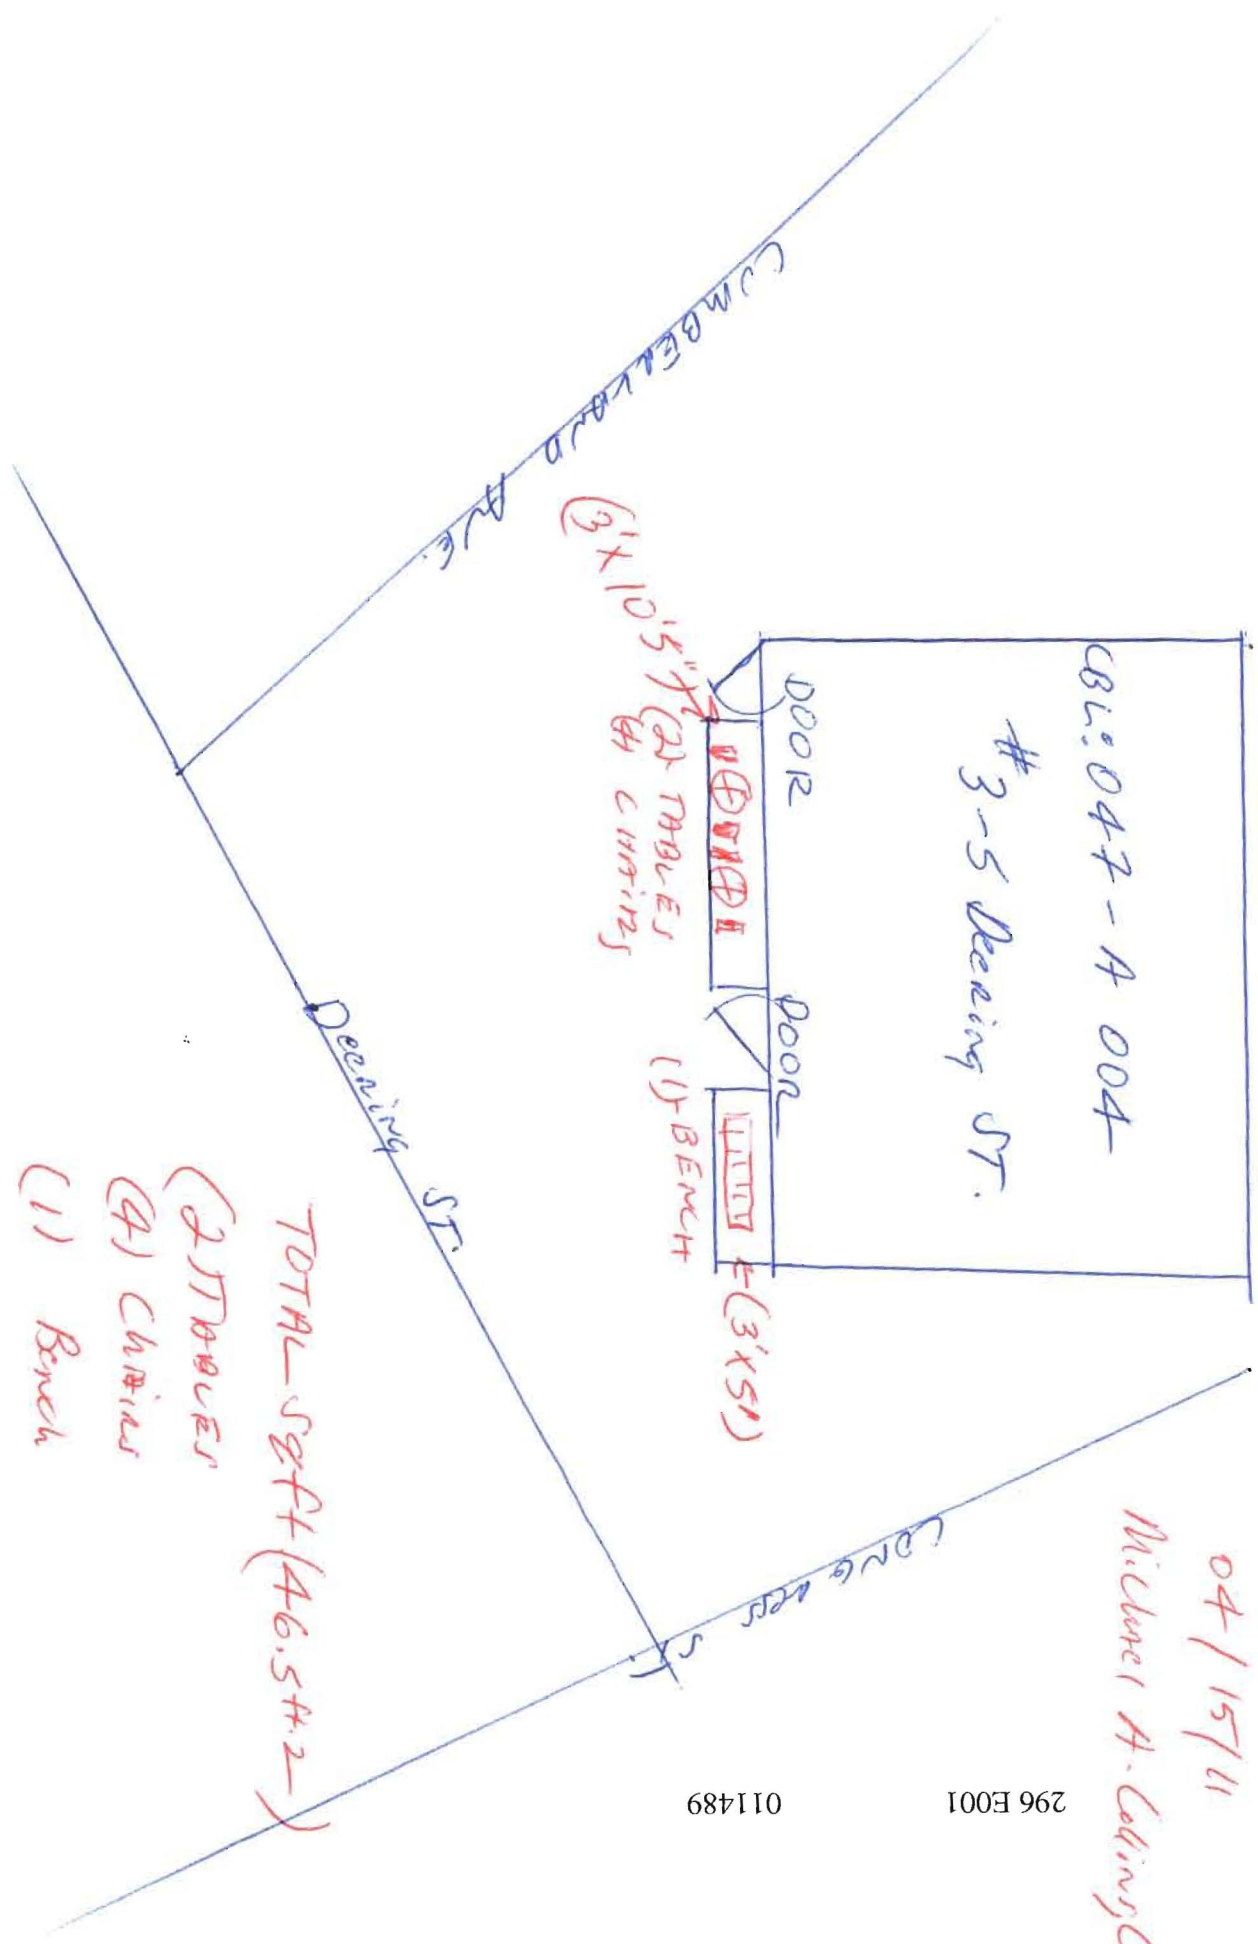 04/15/11
Michael A. Collins,
CBL: 047-A 004
# 3-5 Deering ST.
DOOR
DOOR
(3'x10'5")
(2) TABLES
(4) CHAIRS
(1) BENCH
(3'x5')
CUMBERLAND AVE.
Deering ST.
CONGRESS ST.
TOTAL Sqft (46.5 ft.2)
(2) TABLES
(4) Chairs
(1) Bench
296 E001
011489